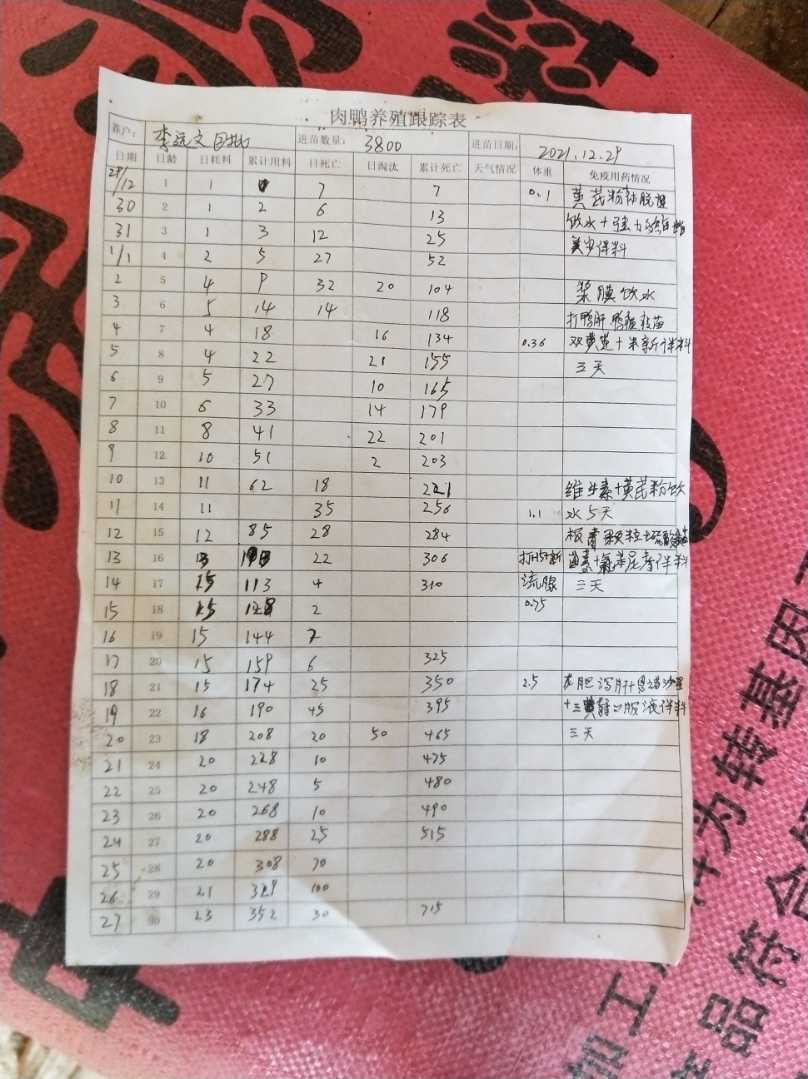 肉鸭养殖跟踪表
养户： 李远文 进苗数量： 3800 进苗日期： 2021.12.29
日期 日龄 日耗料 累计用料 日死亡 日淘汰 累计死亡 天气情况 体重 免疫用药情况
29/12 1 1 7 7 0.1 黄芪粉
30 2 1 2 6 13 饮水+
31 3 1 3 12 25 拌料
1/1 4 2 5 27 52
2 5 4 9 32 20 104 浆膜饮水
3 6 5 14 14 118 打鸭肝
4 7 4 18 16 134 0.36 双黄连+ 拌料
5 8 4 22 21 155 三天
6 9 5 27 10 165
7 10 6 33 14 179
8 11 8 41 22 201
9 12 10 51 2 203
10 13 11 62 18 221 维生素+黄芪粉饮
11 14 11 35 256 1.1 水5天
12 15 12 85 28 284 板青颗粒+
13 16 13 22 306 +氟苯尼考拌料
14 17 15 113 4 310 流腺 三天
15 18 15 128 2 0.75
16 19 15 144 7
17 20 15 159 6 325
18 21 15 174 25 350 2.5 龙胆泻肝+
19 22 16 190 45 395 +三黄 口服液拌料
20 23 18 208 20 50 465 三天
21 24 20 228 10 475
22 25 20 248 5 480
23 26 20 268 10 490
24 27 20 288 25 515
25 28 20 308 70
26 29 21 329 100
27 30 23 352 30 715
为转基因
加工
产品符合